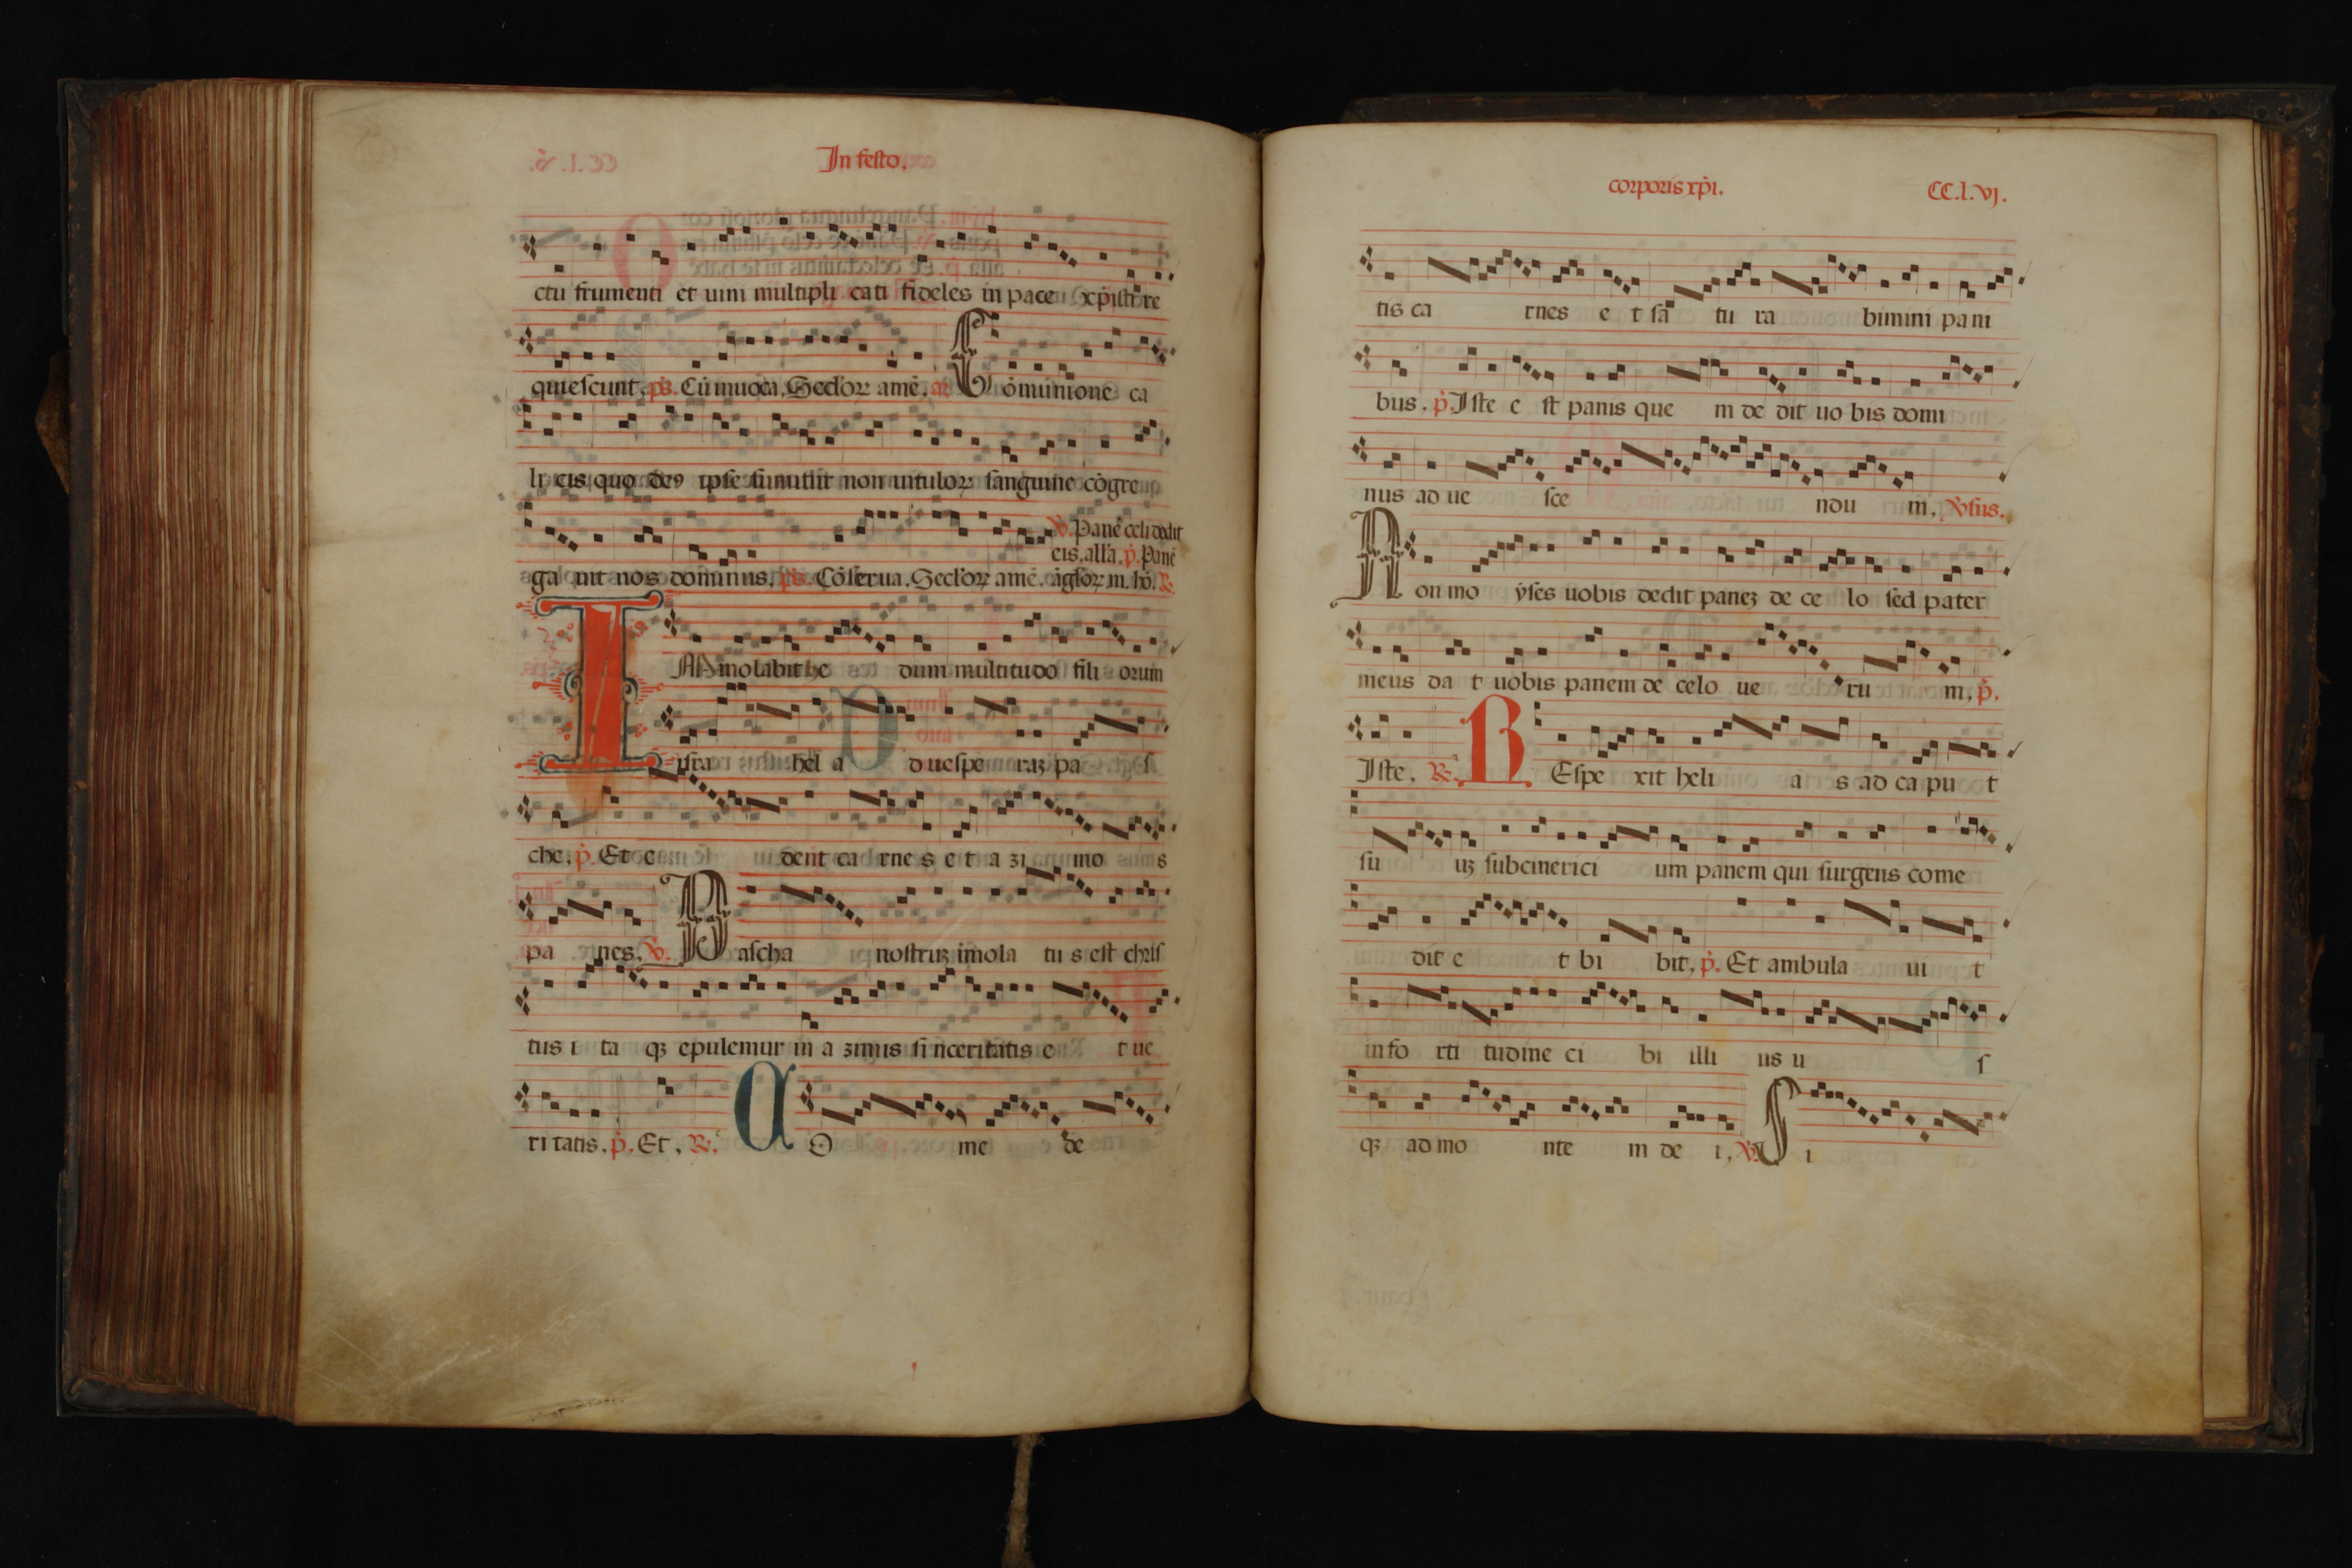 In festo.
ctu frumenti et uini multipli cati fideles in pace xp̄isti re
quiescunt. ps̄. Cū inuoca. Seclorꝝ amē. a. Cōmunione ca
li cis quo deꝯ ipse sumitur non uitulorꝝ sanguine cōgre
ga uit nos dominus. ps̄. Cōserua. Seclorꝝ amē.
ꝟ. Panē celi dedit
eis. all'a. p̄. Panē
āglorꝝ m. hō. ℟.
IMmolabit he dum multitudo fili orum
isra hel a d uespe raꝫ pa s
che. p̄. Et e dent ca rne s e t a zi mo s
pa nes. ꝟ. Pascha nostruꝫ imola tu s est chris
tus i ta qꝫ epulemur in a zimis si nceritatis e t ue
ri tatis. p̄. Et. ℟. CO me de
corporis xp̄i. CC.l.vj.
tis ca rnes e t sa tu ra bimini pani
bus. p̄. Iste e st panis que m de dit uo bis domi
nus ad ue sce ndu m. ꝟsus.
Non mo ẏses uobis dedit paneꝫ de ce lo sed pater
meus da t uobis panem de celo ue ru m. p̄.
Iste. ℟. REspe xit heli a s ad ca pu t
su uꝫ subcinerici um panem qui surgens come
dit e t bi bit. p̄. Et ambula ui t
in fo rti tudine ci bi illi us u s
qꝫ ad mo nte m de i. ꝟ. Si